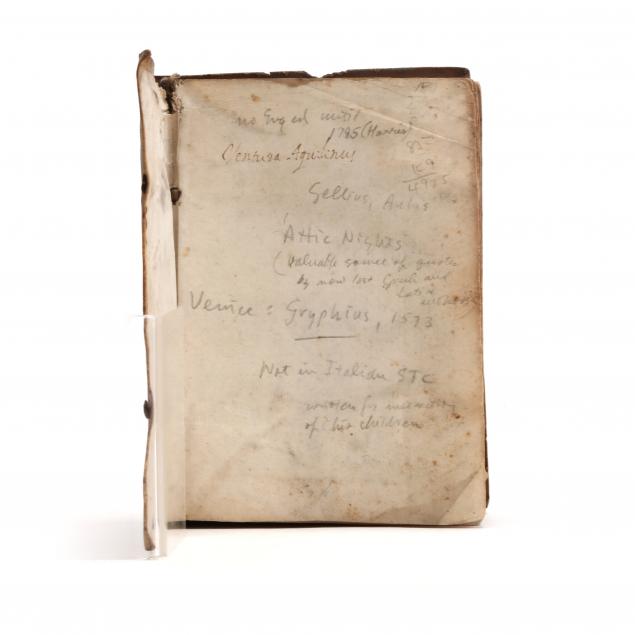 no Eng ed until
1795 (Harris)
Ventura Aquilinus
Gellius, Aulus
Attic Nights
(valuable source of quots
by now lost Greek and
Latin authors)
Venice: Gryphius, 1573
Not in Italian STC
written for instruction
of his children